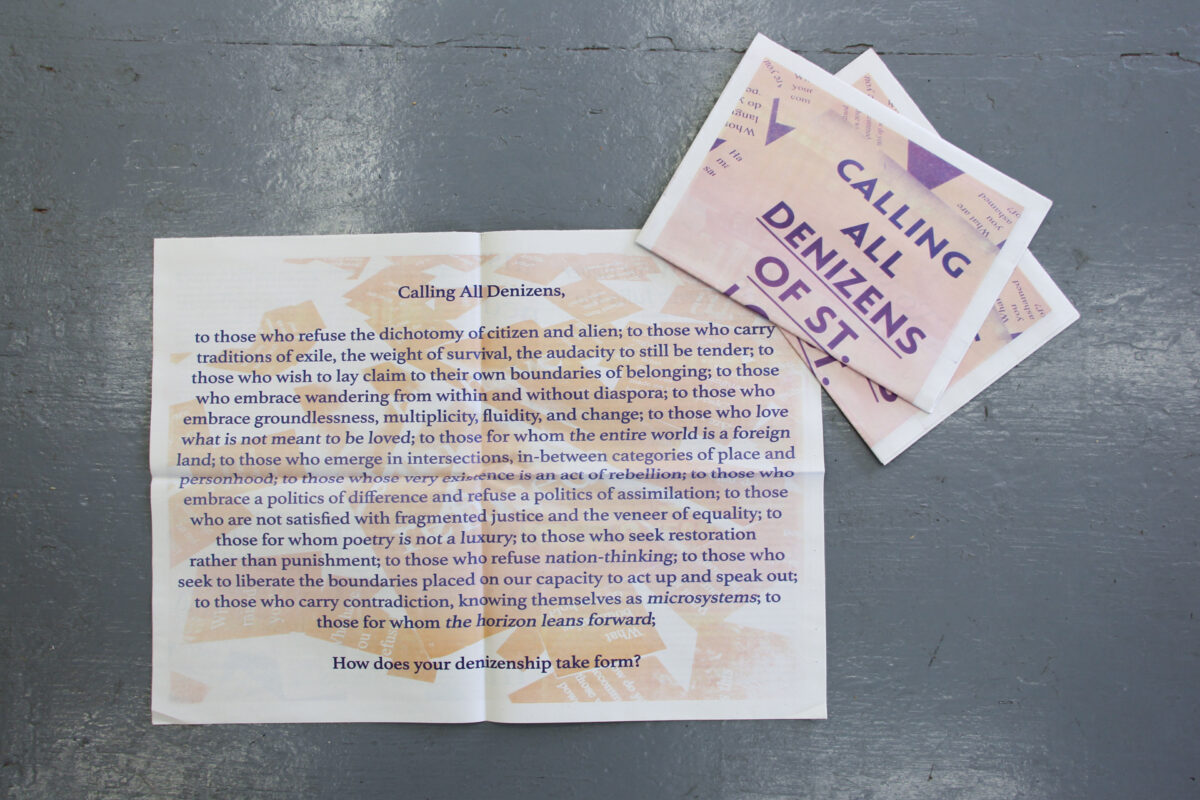 Calling All Denizens,
to those who refuse the dichotomy of citizen and alien; to those who carry
traditions of exile, the weight of survival, the audacity to still be tender; to
those who wish to lay claim to their own boundaries of belonging; to those
who embrace wandering from within and without diaspora; to those who
embrace groundlessness, multiplicity, fluidity, and change; to those who love
what is not meant to be loved; to those for whom the entire world is a foreign
land; to those who emerge in intersections, in-between categories of place and
personhood; to those whose very existence is an act of rebellion; to those who
embrace a politics of difference and refuse a politics of assimilation; to those
who are not satisfied with fragmented justice and the veneer of equality; to
those for whom poetry is not a luxury; to those who seek restoration
rather than punishment; to those who refuse nation-thinking; to those who
seek to liberate the boundaries placed on our capacity to act up and speak out;
to those who carry contradiction, knowing themselves as microsystems; to
those for whom the horizon leans forward;
How does your denizenship take form?
CALLING
ALL
DENIZENS
OF ST.
What are
you
ashamed
What
How do